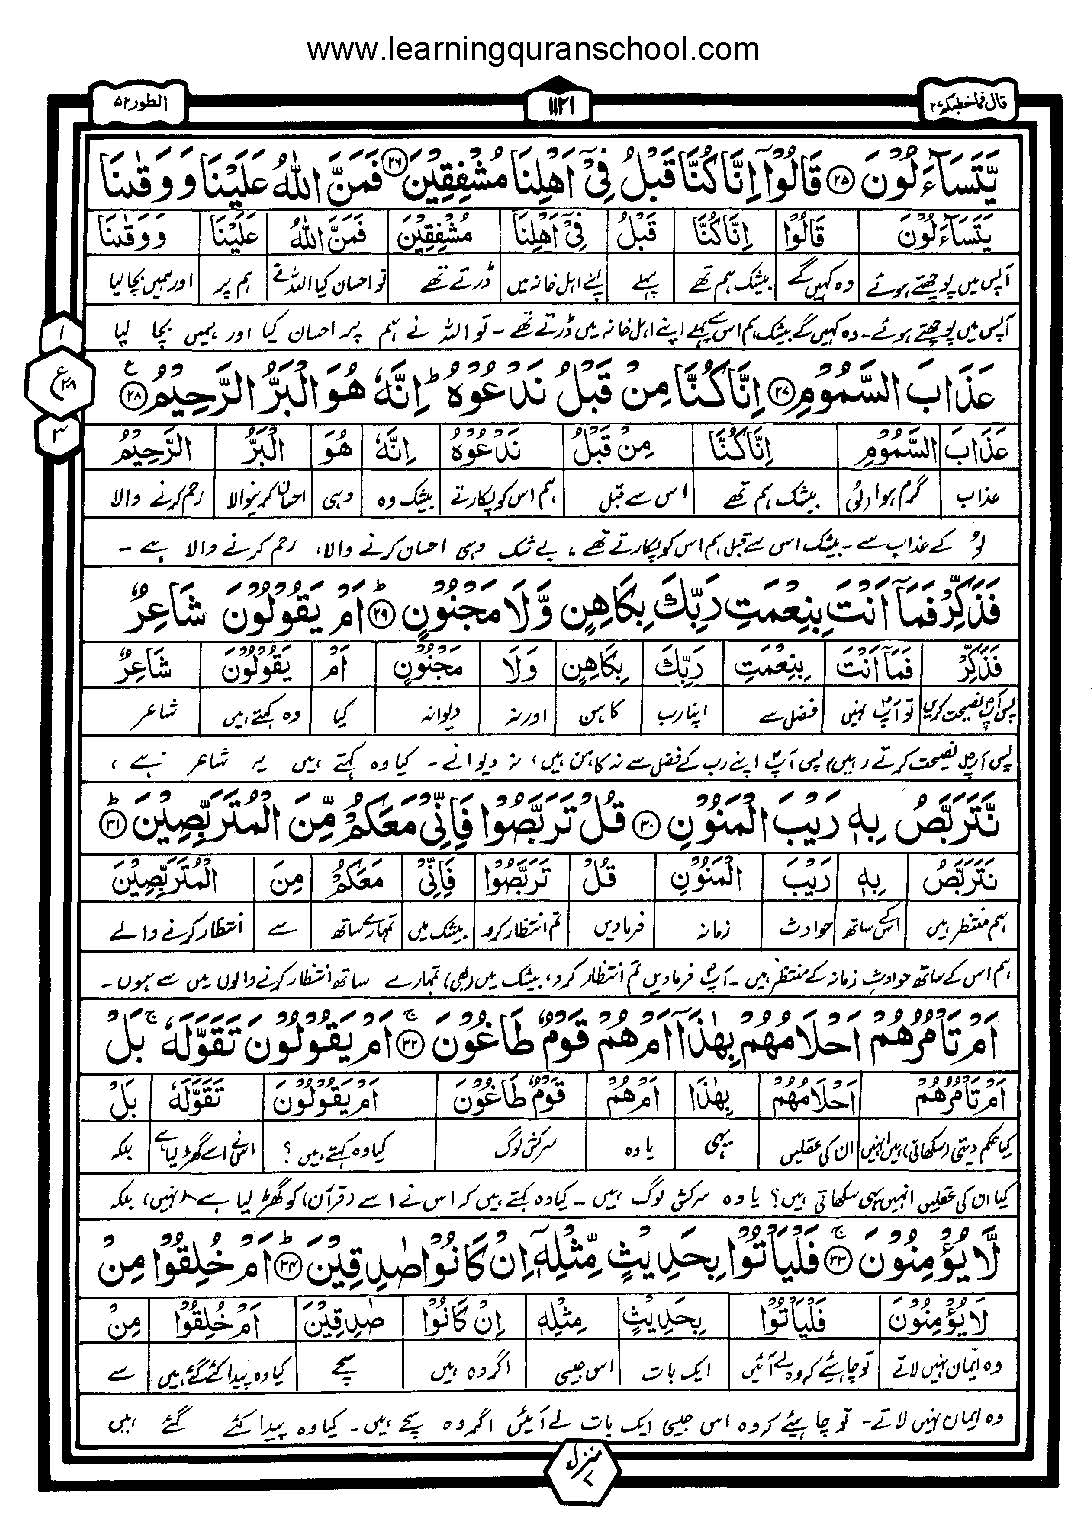 www.learningquranschool.com
قال فما خطبکم ۲۷
۱۱۲۱
الطور ۵۲
یَتَسَآءَلُوْنَ ﴿۲۵﴾ قَالُوْۤا اِنَّا كُنَّا قَبْلُ فِیْۤ اَهْلِنَا مُشْفِقِیْنَ ﴿۲۶﴾ فَمَنَّ اللّٰهُ عَلَیْنَا وَوَقٰىنَا
یَتَسَآءَلُوْنَ قَالُوْۤا اِنَّا كُنَّا قَبْلُ فِیْۤ اَهْلِنَا مُشْفِقِیْنَ فَمَنَّ اللّٰهُ عَلَیْنَا وَوَقٰىنَا
آپس میں پوچھتے ہوئے وہ کہیں گے بیشک ہم تھے پہلے اپنے اہل خانہ میں ڈرتے تھے تو احسان کیا اللہ نے ہم پر اور ہمیں بچا لیا
آپس میں پوچھتے ہوئے۔ وہ کہیں گے بیشک ہم اس سے پہلے اپنے اہل خانہ میں ڈرتے تھے۔ تو اللہ نے ہم پر احسان کیا اور ہمیں بچا لیا
عَذَابَ السَّمُوْمِ ﴿۲۷﴾ اِنَّا كُنَّا مِنْ قَبْلُ نَدْعُوْهُ ؕ اِنَّهٗ هُوَ الْبَرُّ الرَّحِیْمُ ﴿۲۸﴾ ع
۱
ع ۲۸
۳
عَذَابَ السَّمُوْمِ اِنَّا كُنَّا مِنْ قَبْلُ نَدْعُوْهُ اِنَّهٗ هُوَ الْبَرُّ الرَّحِیْمُ
عذاب گرم ہوا (لُو) بیشک ہم تھے اس سے قبل ہم اس کو پکارتے بیشک وہ وہی احسان کرنیوالا رحم کرنے والا
لُو کے عذاب سے۔ بیشک اس سے قبل ہم اس کو پکارتے تھے، بے شک وہی احسان کرنے والا، رحم کرنے والا ہے۔
فَذَكِّرْ فَمَاۤ اَنْتَ بِنِعْمَتِ رَبِّكَ بِكَاهِنٍ وَّلَا مَجْنُوْنٍ ﴿۲۹﴾ؕ اَمْ یَقُوْلُوْنَ شَاعِرٌ
فَذَكِّرْ فَمَاۤ اَنْتَ بِنِعْمَتِ رَبِّكَ بِكَاهِنٍ وَلَا مَجْنُوْنٍ اَمْ یَقُوْلُوْنَ شَاعِرٌ
پس آپؐ نصیحت کریں تو آپؐ نہیں فضل سے اپنا رب کاہن اور نہ دیوانہ کیا وہ کہتے ہیں شاعر
پس آپؐ نصیحت کرتے رہیں، پس آپؐ اپنے رب کے فضل سے نہ کاہن ہیں، نہ دیوانے۔ کیا وہ کہتے ہیں یہ شاعر ہے،
نَّتَرَبَّصُ بِهٖ رَیْبَ الْمَنُوْنِ ﴿۳۰﴾ قُلْ تَرَبَّصُوْا فَاِنِّیْ مَعَكُمْ مِّنَ الْمُتَرَبِّصِیْنَ ﴿۳۱﴾ؕ
نَتَرَبَّصُ بِهٖ رَیْبَ الْمَنُوْنِ قُلْ تَرَبَّصُوْا فَاِنِّیْ مَعَكُمْ مِنَ الْمُتَرَبِّصِیْنَ
ہم منتظر ہیں اسکے ساتھ حوادث زمانہ فرمادیں تم انتظار کرو بیشک میں تمہارے ساتھ سے انتظار کرنے والے
ہم اس کے ساتھ حوادثِ زمانہ کے منتظر ہیں۔ آپؐ فرمادیں تم انتظار کرو، بیشک میں (بھی) تمہارے ساتھ انتظار کرنے والوں میں سے ہوں۔
اَمْ تَاْمُرُهُمْ اَحْلَامُهُمْ بِهٰذَاۤ اَمْ هُمْ قَوْمٌ طَاغُوْنَ ﴿۳۲﴾ۚ اَمْ یَقُوْلُوْنَ تَقَوَّلَهٗ ۚ بَلْ
اَمْ تَاْمُرُهُمْ اَحْلَامُهُمْ بِهٰذَا اَمْ هُمْ قَوْمٌ طَاغُوْنَ اَمْ یَقُوْلُوْنَ تَقَوَّلَهٗ بَلْ
کیا حکم دیتی (سکھاتی) ہیں انہیں ان کی عقلیں یہی یا وہ سرکش لوگ کیا وہ کہتے ہیں؟ اس نے اسے گھڑ لیا ہے بلکہ
کیا ان کی عقلیں انہیں یہی سکھاتی ہیں؟ یا وہ سرکش لوگ ہیں۔ کیا وہ کہتے ہیں کہ اس نے اسے (قرآن) کو گھڑ لیا ہے۔ (نہیں) بلکہ
لَّا یُؤْمِنُوْنَ ﴿۳۳﴾ۚ فَلْیَاْتُوْا بِحَدِیْثٍ مِّثْلِهٖۤ اِنْ كَانُوْا صٰدِقِیْنَ ﴿۳۴﴾ؕ اَمْ خُلِقُوْا مِنْ
لَا یُؤْمِنُوْنَ فَلْیَاْتُوْا بِحَدِیْثٍ مِثْلِهٖ اِنْ كَانُوْا صٰدِقِیْنَ اَمْ خُلِقُوْا مِنْ
وہ ایمان نہیں لاتے تو چاہئے کہ وہ لے آئیں ایک بات اس جیسی اگر وہ ہیں سچے کیا وہ پیدا کئے گئے ہیں سے
وہ ایمان نہیں لاتے۔ تو چاہیئے کہ وہ اس جیسی ایک بات لے آئیں اگر وہ سچے ہیں۔ کیا وہ پیدا کئے گئے ہیں
منزل ۷